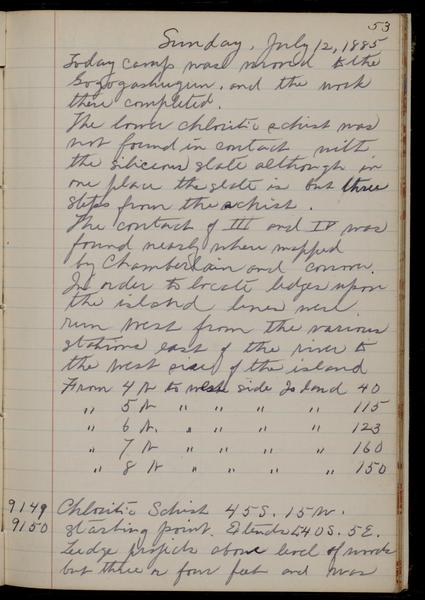 53
Sunday, July 12, 1885
Today camp was moved to the
Gogogashugun, and the work
there completed.
The lower chloritic schist was
not found in contact with
the silicious slate although in
one place the slate is but three
steps from the schist.
The contact of III and IV was
found nearly where mapped
by Chamberlain and Conover.
In order to locate ledges upon
the island lines were
run West from the various
stations east of the river to
the west side of the island
From 4 N to west side Island 40
" 5 N " " " " 115
" 6 N. " " " " 123
" 7 N " " " " 160
" 8 N " " " " 150
9149 Chloritic Schist 45 S. 15 W.
9150 starting point. Extends 40 S. 5 E.
Ledge projects above level of
but three or four feet and was